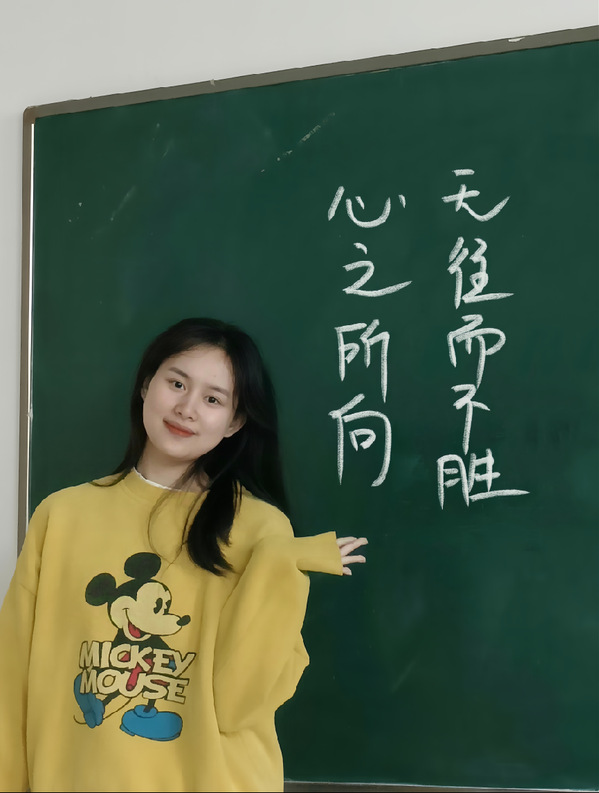 心之所向
无往而不胜
MICKEY
MOUSE